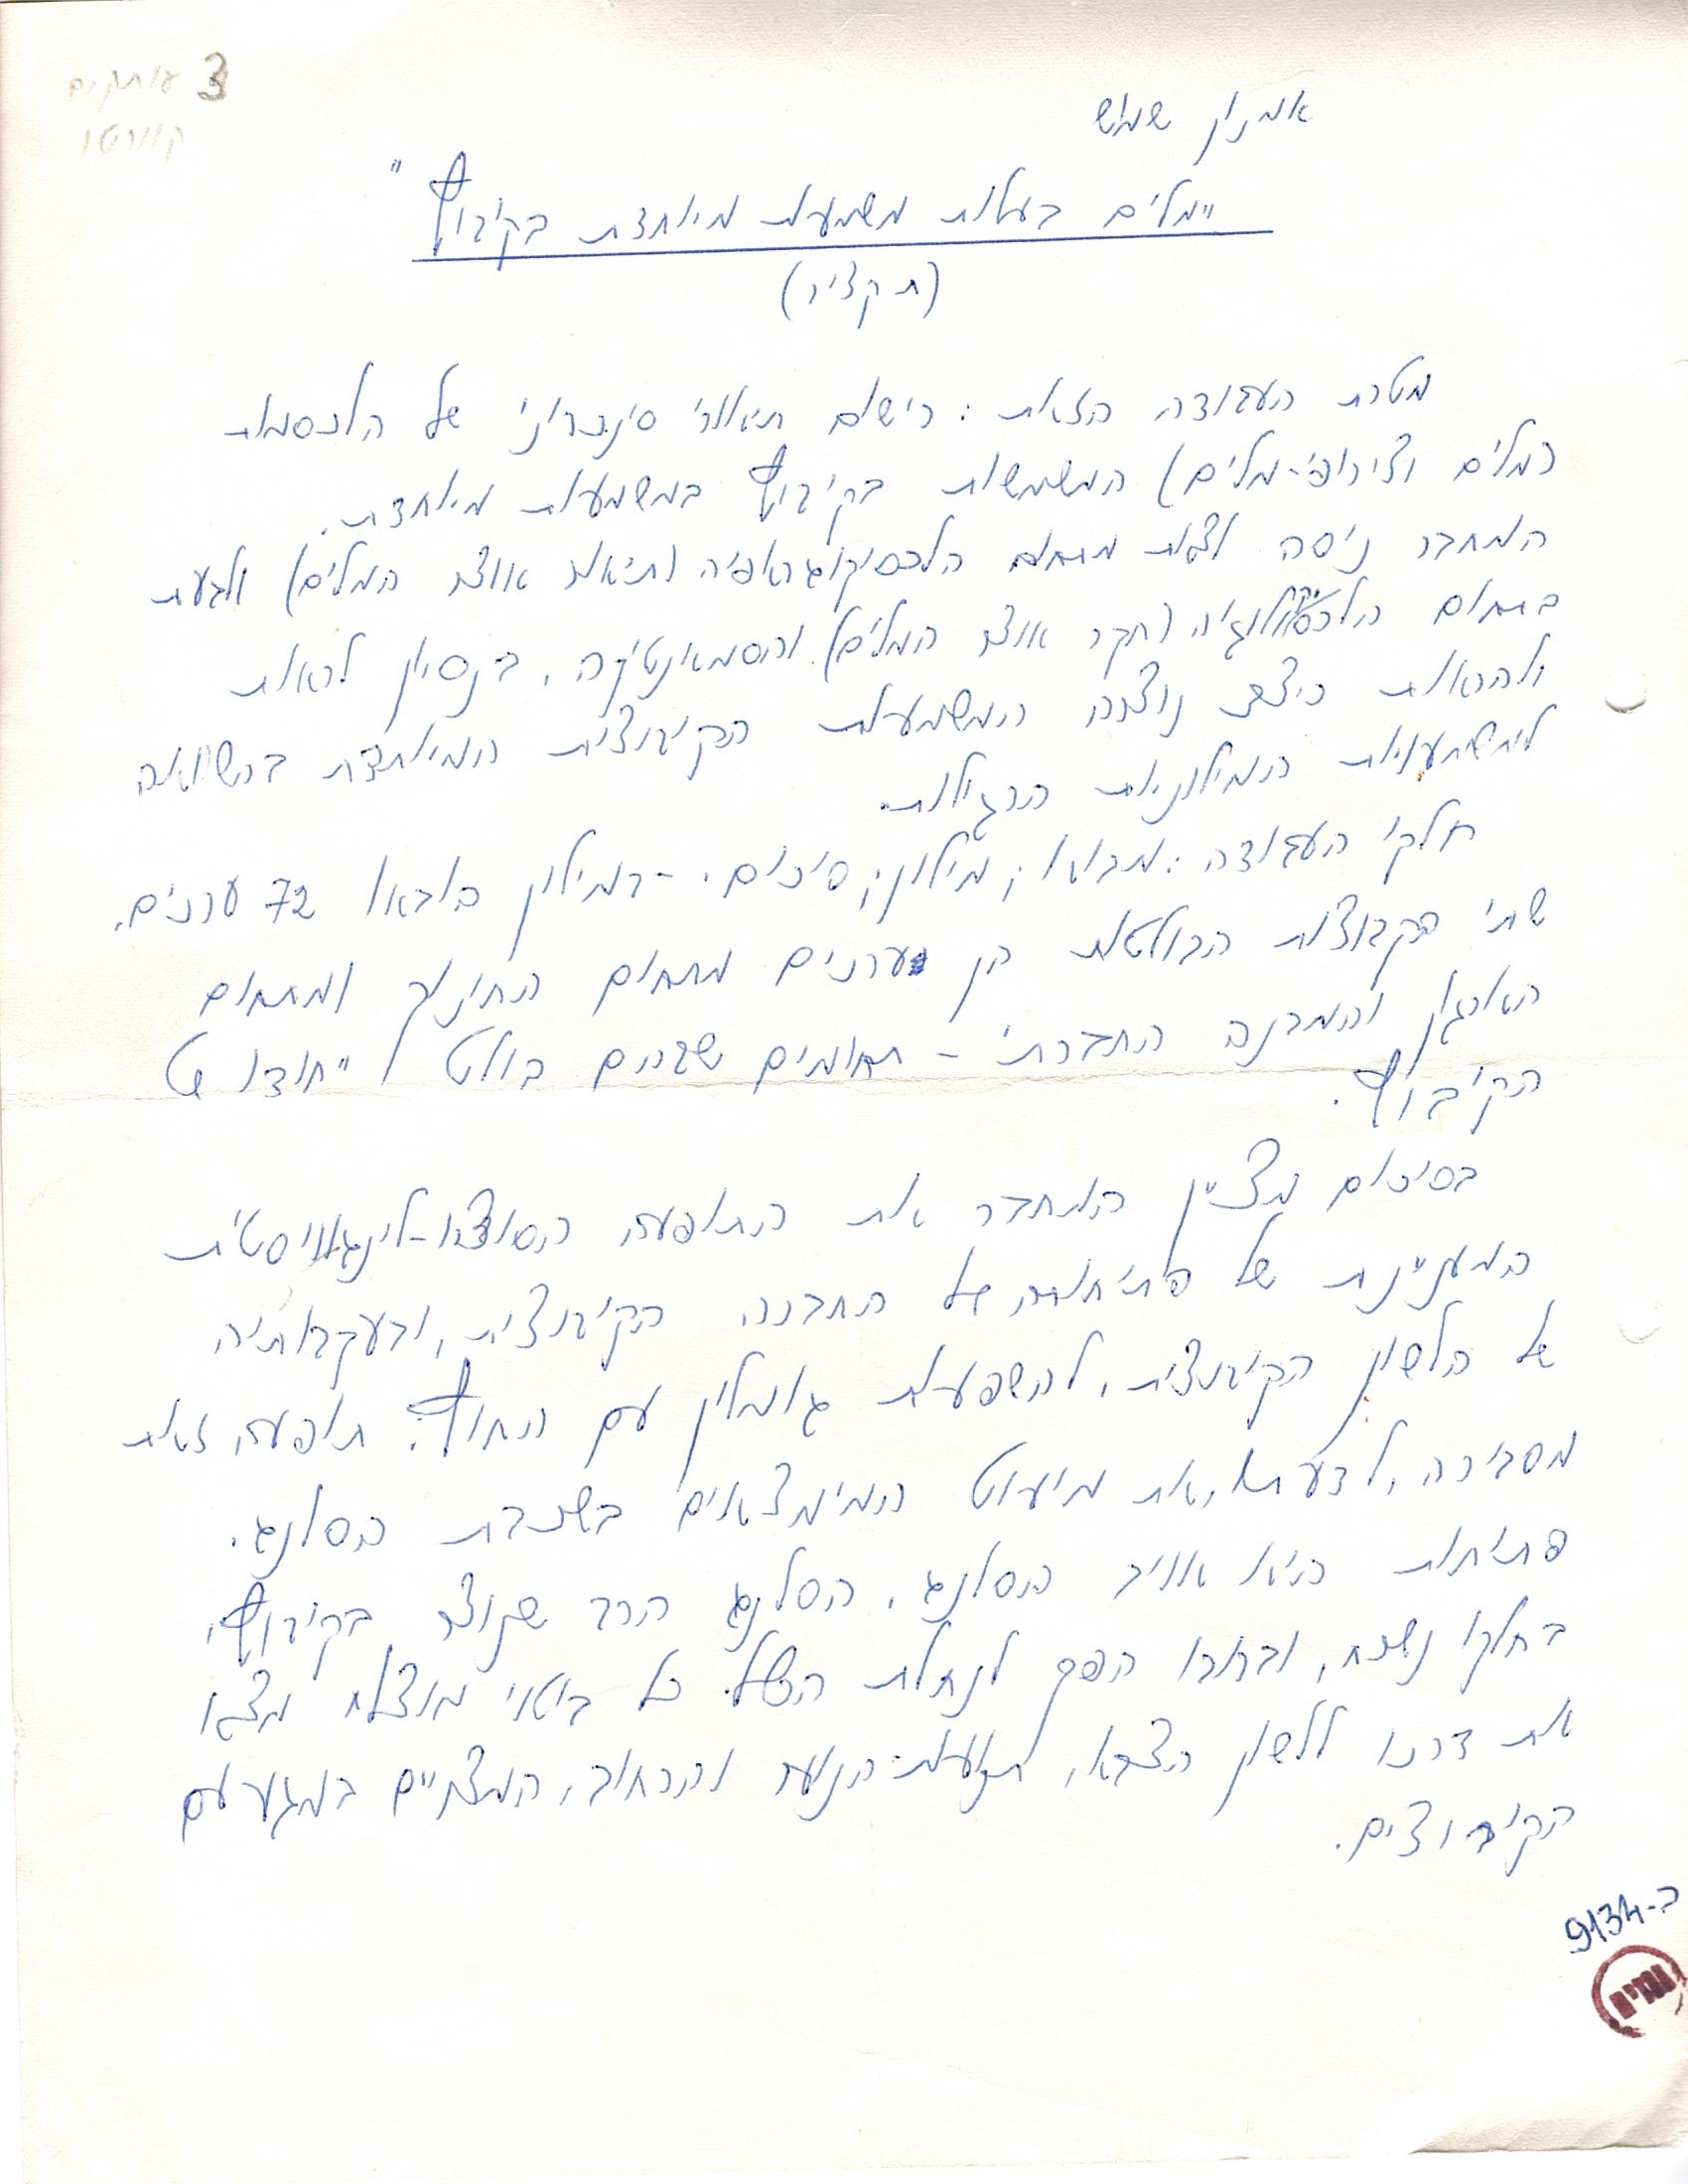 3 עותקים
קוורטו
אמנון שמוש
"מלים בעלות משמעות מיוחדת בקיבוץ"
(תקציר)
מטרת העבודה הזאת: רישום תיאורי סינכרוני של הלכסמות
(מלים וצירופי-מלים) המשמשות בקיבוץ במשמעות מיוחדת.
המחבר ניסה לצאת מתחום הלכסיקוגראפיה (תיאור אוצר המלים) ולגעת
בתחום הלכסיקולוגיה (חקר אוצר המלים) והסמאנטיקה, בנסיון לראות
ולהראות כיצד נוצרה המשמעות הקיבוצית המיוחדת בהשוואה
למשמעויות המילוניות הרגילות.
חלקי העבודה: מבוא, מילון, סיכום. - במילון הובאו 72 ערכים.
שתי הקבוצות הבולטות הן ערכים מתחום החינוך ומתחום
הארגון והמבנה החברתי - תחומים שבהם בולט ייחודו של
הקיבוץ.
בסיכום מציין המחבר את התופעה הסוציו-לינגוויסטית
המעניינת של פתיחותה של החברה הקיבוצית, ובעקבותיה
של הלשון הקיבוצית, להשפעות גומלין עם החוץ. תופעה זאת
מסבירה, לדעתו, את מיעוט הממצאים בשכבת הסלנג.
פתיחות היא אויב הסלנג. הסלנג הרב שנוצר בקיבוץ,
בחלקו נשכח, וברובו הפך לנחלת הכלל. כל ביטוי מוצלח מצא
את דרכו ללשון הצבא, תנועות-הנוער והרחוב, המצויים במגע עם
הקיבוצים.
כ-9134